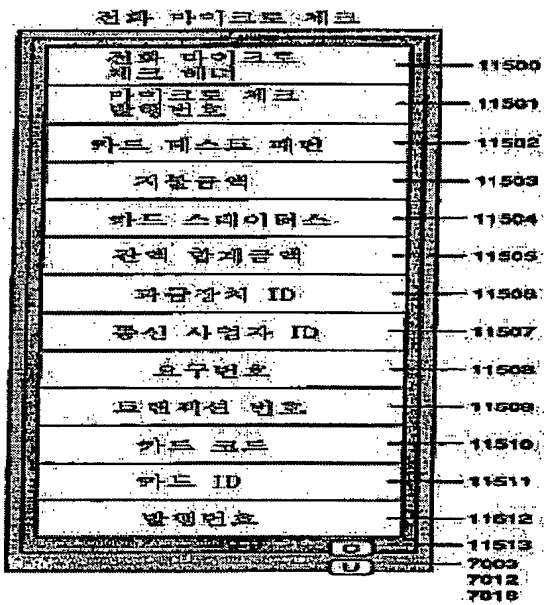 전화 마이크로 체크
전화 마이크로
체크 헤더
11500
마이크로 체크
발행번호
11501
카드 테스트 패턴
11502
지불금액
11503
카드 스테이터스
11504
잔액 합계금액
11505
과금장치 ID
11506
통신 사업자 ID
11507
요구번호
11508
트랜잭션 번호
11509
카드 코드
11510
카드 ID
11511
발행번호
11512
11513
U
7003
7012
7018